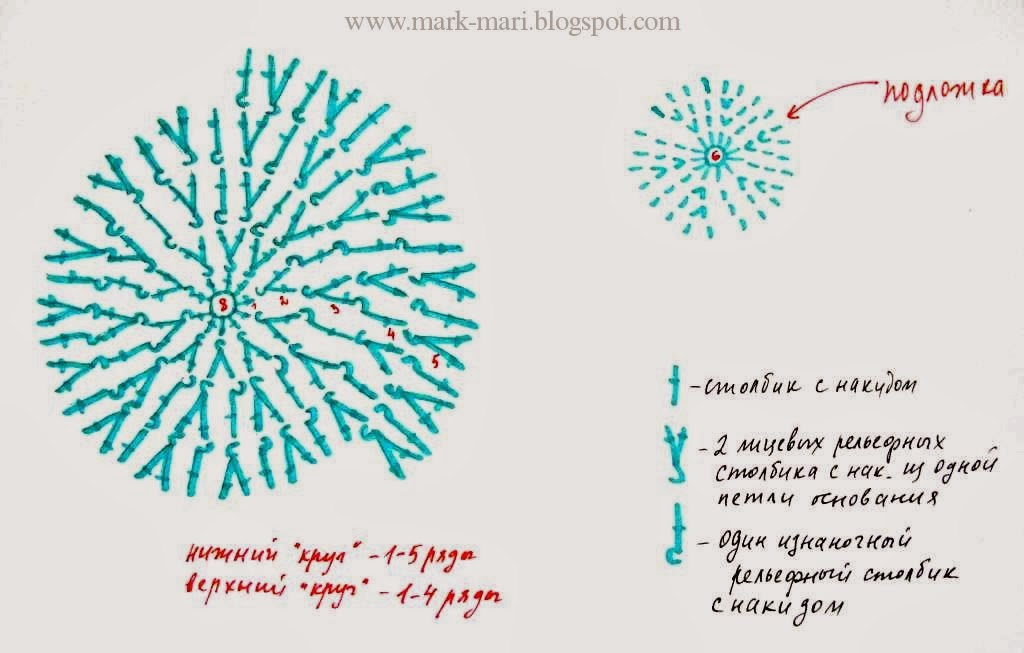 www.mark-mari.blogspot.com
подложка
6
8
1
2
3
4
5
- столбик с накидом
- 2 лицевых рельефных
столбика с нак. из одной
петли основания
- один изнаночный
рельефный столбик
с накидом
нижний "круг" - 1-5 ряды
верхний "круг" - 1-4 ряды